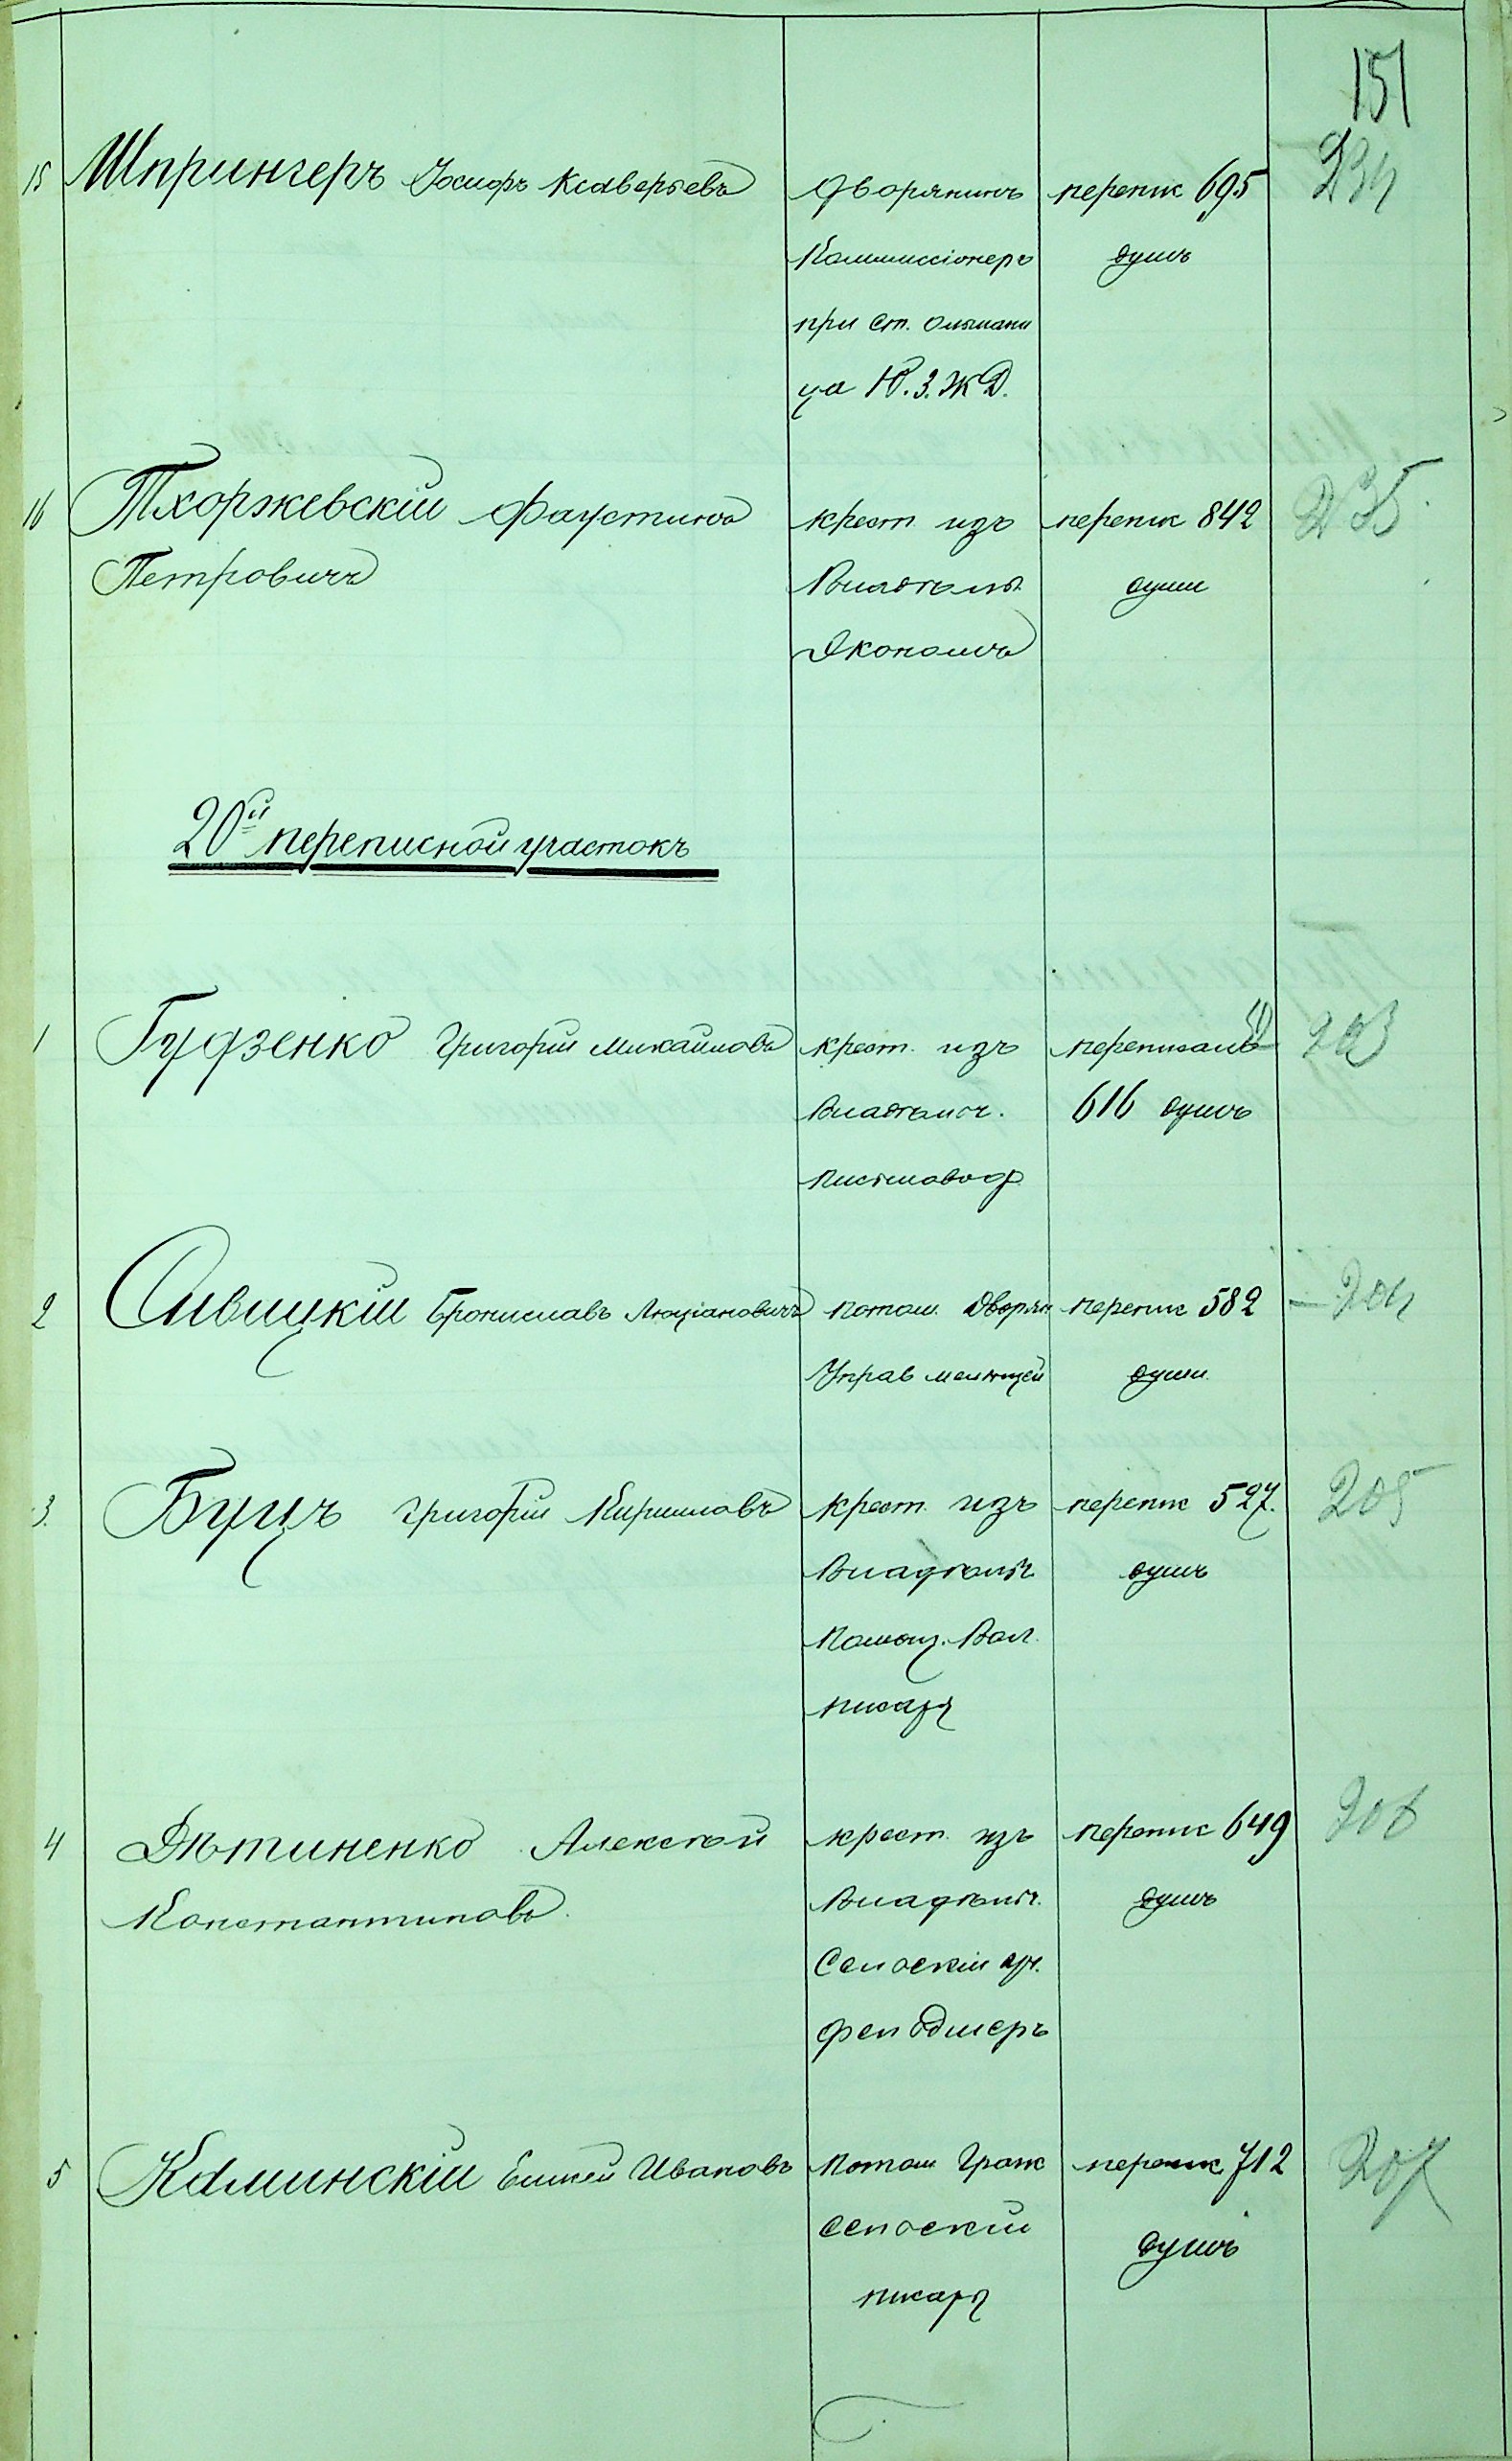 151
15 Шпрингеръ Іосифъ Ксаверьевъ дворянинъ перепис 695 234
Коммиссіонеръ душъ
при ст. Ольшани
ца Ю.З.Ж.Д.
16 Тхоржевскій Фаустинъ крест. изъ перепис 842 235
Петровичъ Владѣльч. души
Экономъ
20й переписной участокъ
1 Гудзенко Григорій Михайловъ крест. изъ переписалъ 203
Владѣльч. 616 душъ
письмовод.
2 Сивицкій Брониславъ Люціановичъ потом. дворян перепис 582 204
Управляющій души
3. Буцъ Григорій Кирилловъ крест. изъ перепис 527. 205
Владѣльч. душъ
Помощ. Вол.
писаря
4 Дѣтиненко Алексѣй крест. изъ перепис 649 206
Константиновъ. Владѣльч. душъ
Сельскій уч.
фельдшеръ
5 Каминскій Елисей Ивановъ Потом Граж перепис 712 207
сельскій душъ
писарь